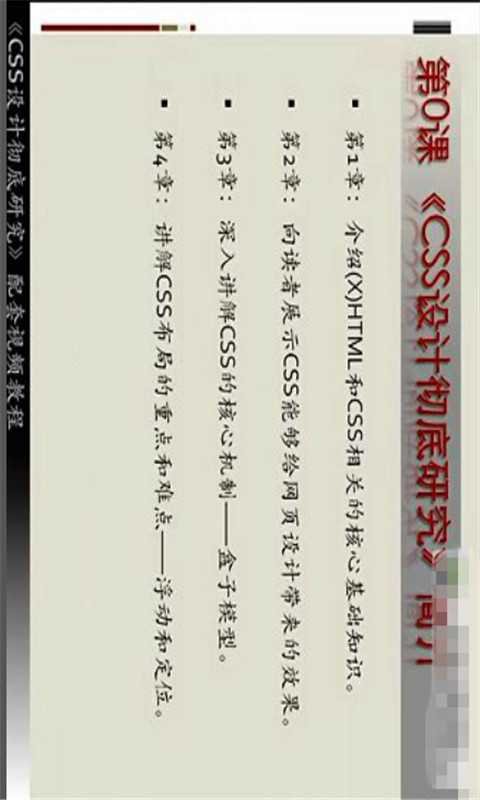 第0课 《CSS设计彻底研究》简介
▪ 第1章：介绍(X)HTML和CSS相关的核心基础知识。
▪ 第2章：向读者展示CSS能够给网页设计带来的效果。
▪ 第3章：深入讲解CSS的核心机制——盒子模型。
▪ 第4章：讲解CSS布局的重点和难点——浮动和定位。
《CSS设计彻底研究》配套视频教程